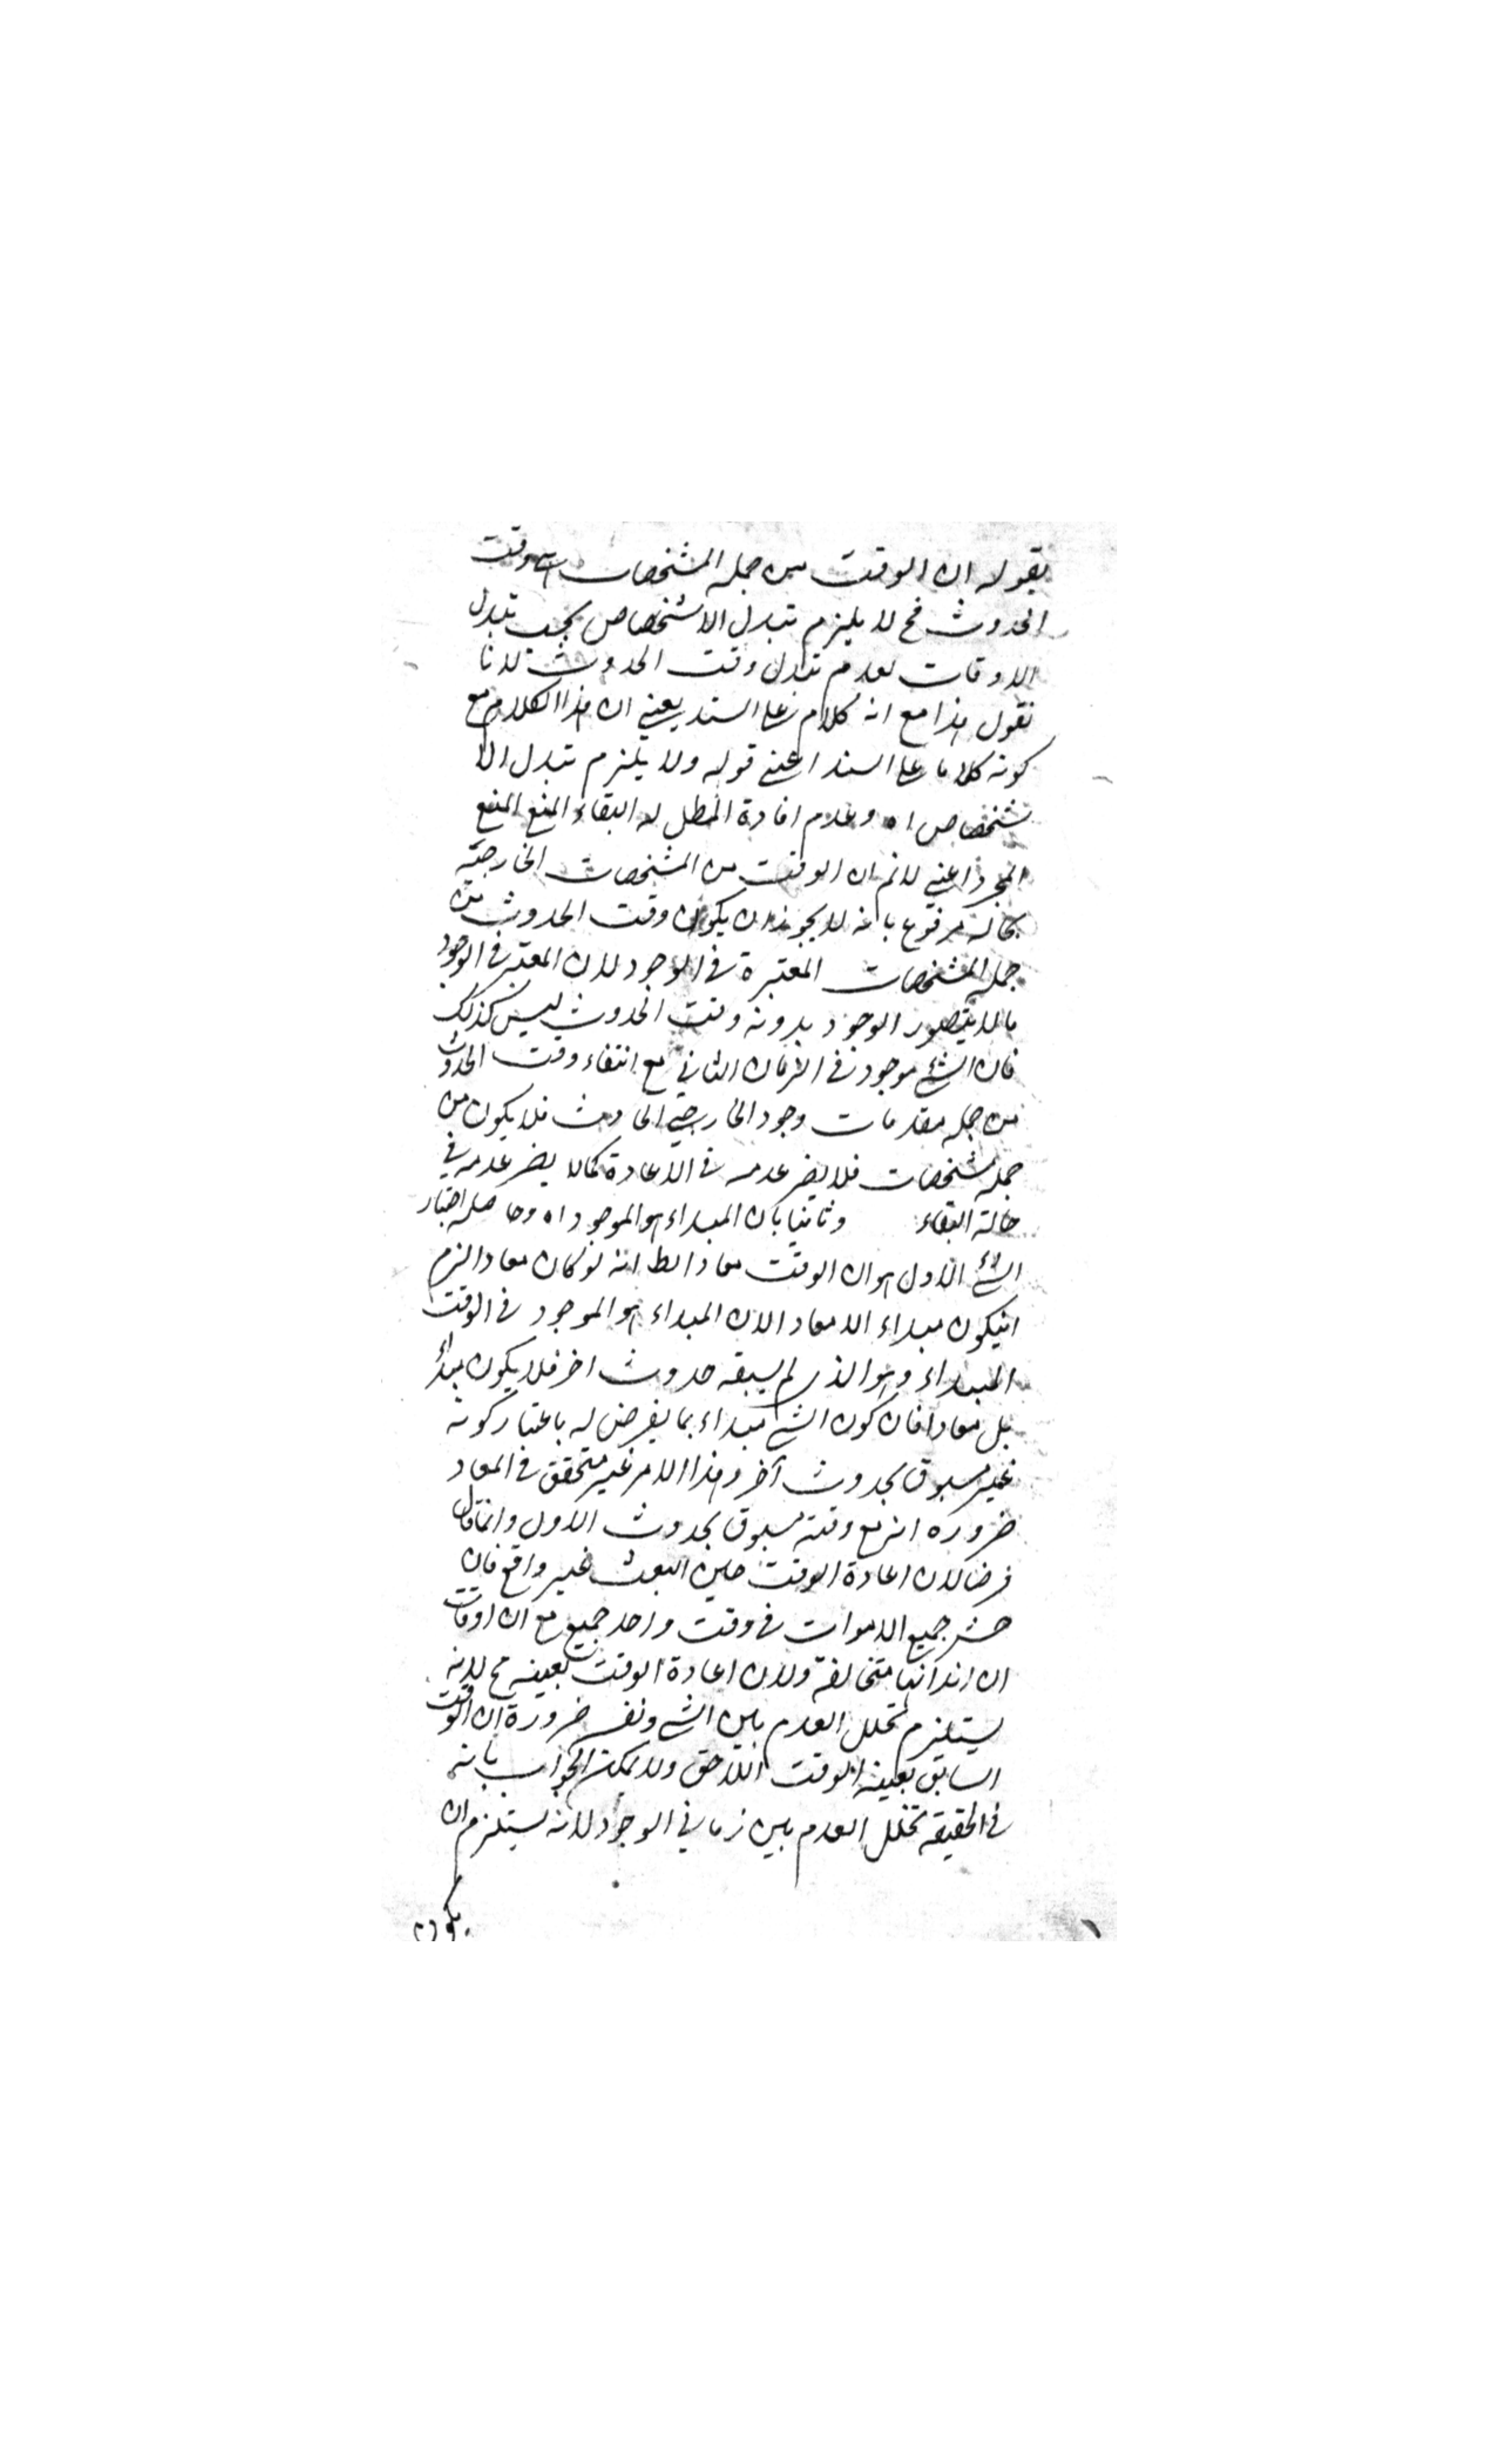 بقوله ان الوقت من جملة المشخصات وقت
الحدوث فح لا يلزم تبدل الاشخاص بحسب تبدل
الاوقات لعدم تبدل وقت الحدوث لانا
نقول هذا مع انه كلام على السند يعني ان هذا الكلام مع
كونه كلاما على السند اعني قوله ولا يلزم تبدل الا
شخاص اه وعدم افادة المطل لبقاء المنع المنع
المجرد اعني لانم ان الوقت من المشخصات الخارجية
بحاله مرفوع بانه لا يجوز ان يكون وقت الحدوث من
جملة المشخصات المعتبرة في الوجود لان المعتبر في الوجود
ما لا يتصور الوجود بدونه وقت الحدوث ليس كذلك
فان الشئ موجود في الزمان الثاني مع انتفاء وقت الحدوث
من جملة مقدمات وجود الخارجي الحادث فلا يكون من
جملة مشخصات فلا يضر عدمه في الاعادة كما لا يضر عدمه في
حالة البقاء وثانيا بان المبداء هو الموجود اه وحاصله اختيار
الشئ الاول هو ان الوقت معاد ايط انه لو كان معادا لزم
انيكون مبداء لا معادا لان المبداء هو الموجود في الوقت
المبداء وهو الذي لم يسبقه حدوث اخر فلا يكون مبداء
بل معادا فان كون الشئ مبداء بما يفرض له باعتبار كونه
غير مسبوق بحدوث آخر وهذا الامر غير متحقق في المعاد
ضرورة انه مع وقته مسبوق بحدوث الاول وانما قال
فرضا لان اعادة الوقت حين البعث غير واقع فان
حشر جميع الاموات في وقت واحد جميع مع ان اوقات
متخالفة ولان اعادة الوقت بعينه مح لانه
يستلزم تخلل العدم بين الشئ ونفسه ضرورة ان الوقت
السابق بعينه الوقت اللاحق ولا يمكن الجواب بانه
في الحقيقة تخلل العدم بين زماني الوجود لانه يستلزم ان
يكون